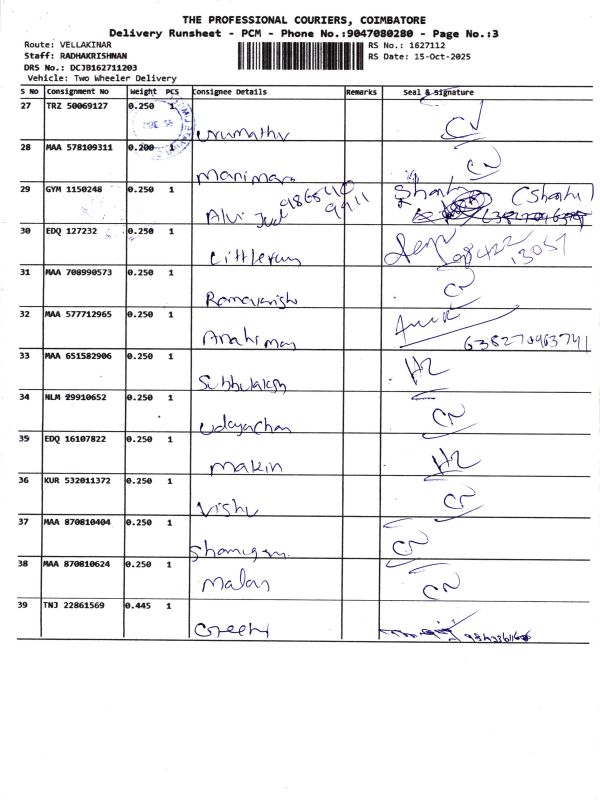 THE PROFESSIONAL COURIERS, COIMBATORE
Delivery Runsheet - PCM - Phone No.:9047080280 - Page No.:3
Route: VELLAKINAR
RS No.: 1627112
Staff: RADHAKRISHNAN
RS Date: 15-Oct-2025
DRS No.: DCJB162711203
Vehicle: Two Wheeler Delivery
S No Consignment No Weight PCS Consignee Details Remarks Seal & Signature
27 TRZ 50069127 0.250 1
CN
28 MAA 578109311 0.200 1
Manimara CN
29 GYM 1150248 0.250 1
Shanthi (Shanthi)
30 EDQ 127232 0.250 1
98422
13057
31 MAA 708990573 0.250 1
CN
32 MAA 577712965 0.250 1
638270963741
33 MAA 651582906 0.250 1
H2
34 NLM 29910652 0.250 1
Udayachan CN
35 EDQ 16107822 0.250 1
Makin H2
36 KUR 532011372 0.250 1
Vishu CN
37 MAA 870810404 0.250 1
CN
38 MAA 870810624 0.250 1
Malan CN
39 TNJ 22861569 0.445 1